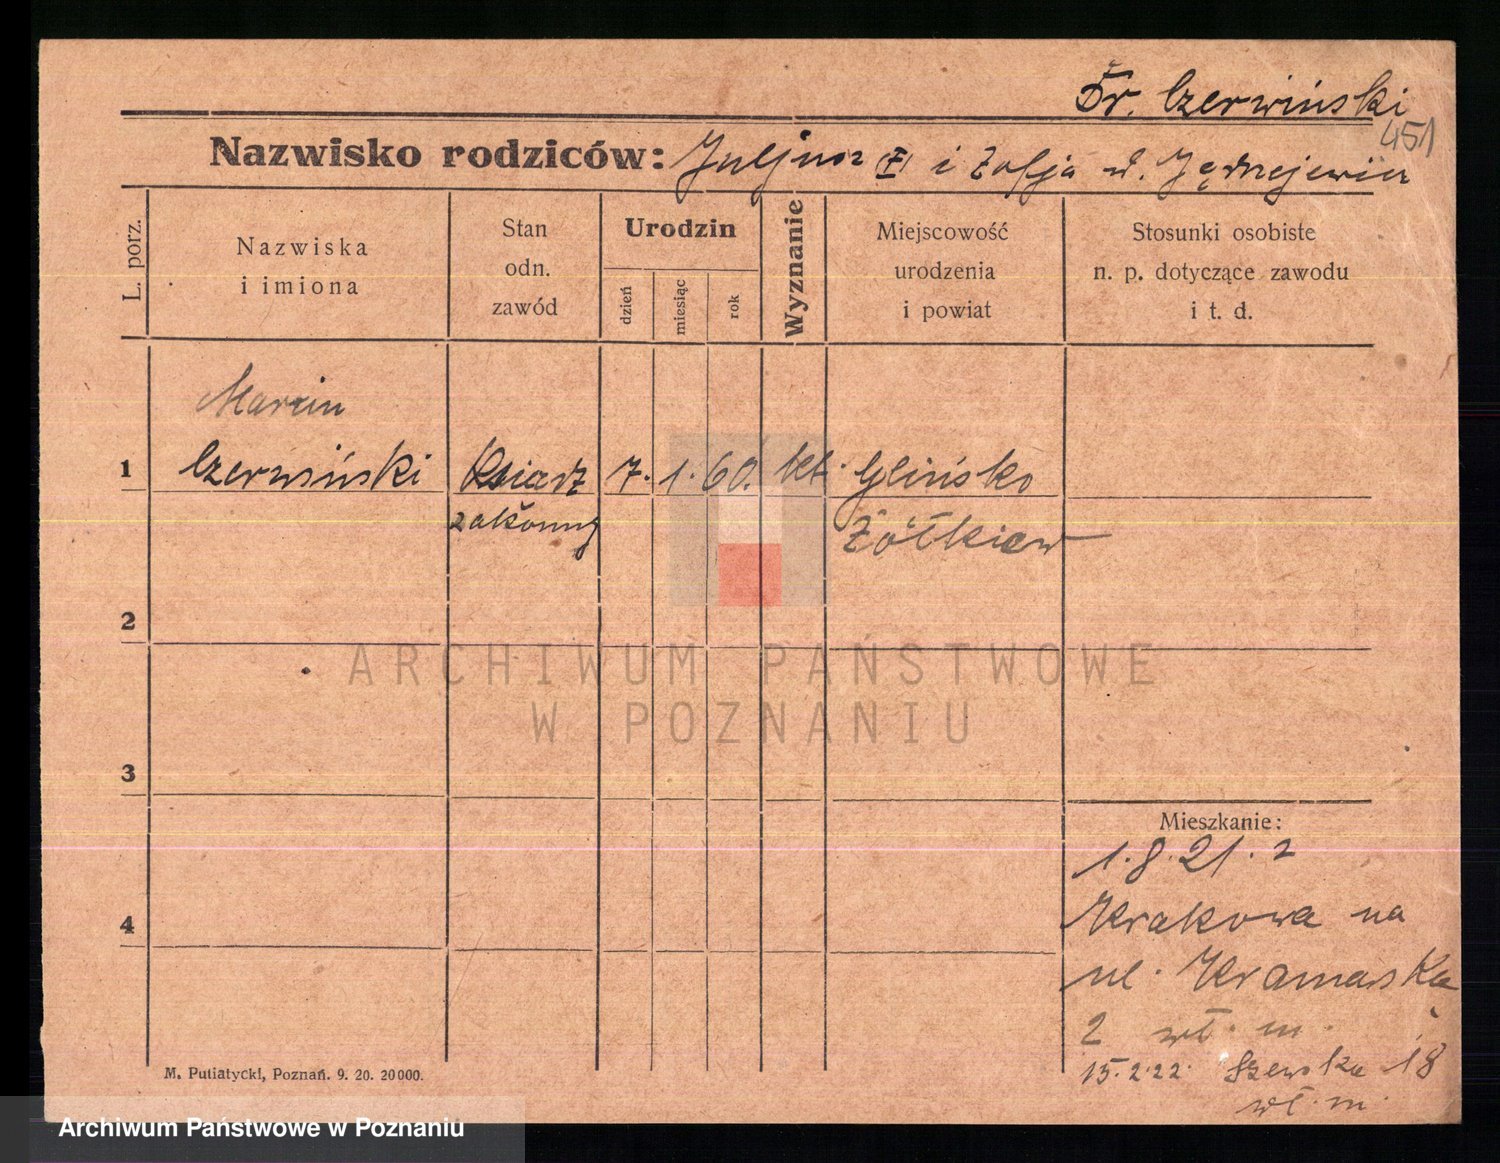 Fr. Czerwiński
451
Nazwisko rodziców: Juljusz i Zofja
L. porz.
Nazwiska
i imiona
Stan
odn.
zawód
Urodzin
dzień
miesiąc
rok
Wyznanie
Miejscowość
urodzenia
i powiat
Stosunki osobiste
n. p. dotyczące zawodu
i t. d.
Marcin
1 Czerwiński Ksiadz 7. 1. 60. kt. Glińsko
zakonny Żółkiew
2
ARCHIWUM PAŃSTWOWE
W POZNANIU
3
Mieszkanie:
1.8.21. z
Krakowa na
4
ul. Kramarska
2 wł. m.
15.2.22. Szewska 18
wł. m.
M. Putiatycki, Poznań. 9. 20. 20000.
Archiwum Państwowe w Poznaniu